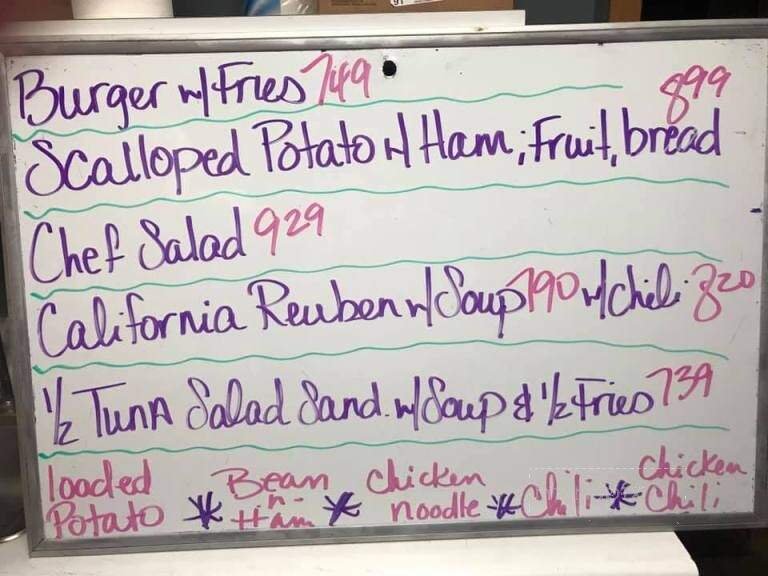 Burger w/ Fries 749
899
Scalloped Potato w/ Ham; Fruit, bread
Chef Salad 929
California Reuben w/ Soup 790 w/ chili 820
1/2 Tuna Salad Sand. w/ Soup & 1/2 Fries 739
loaded Potato * Bean -n- Ham * Chicken noodle * Chili * Chicken Chili